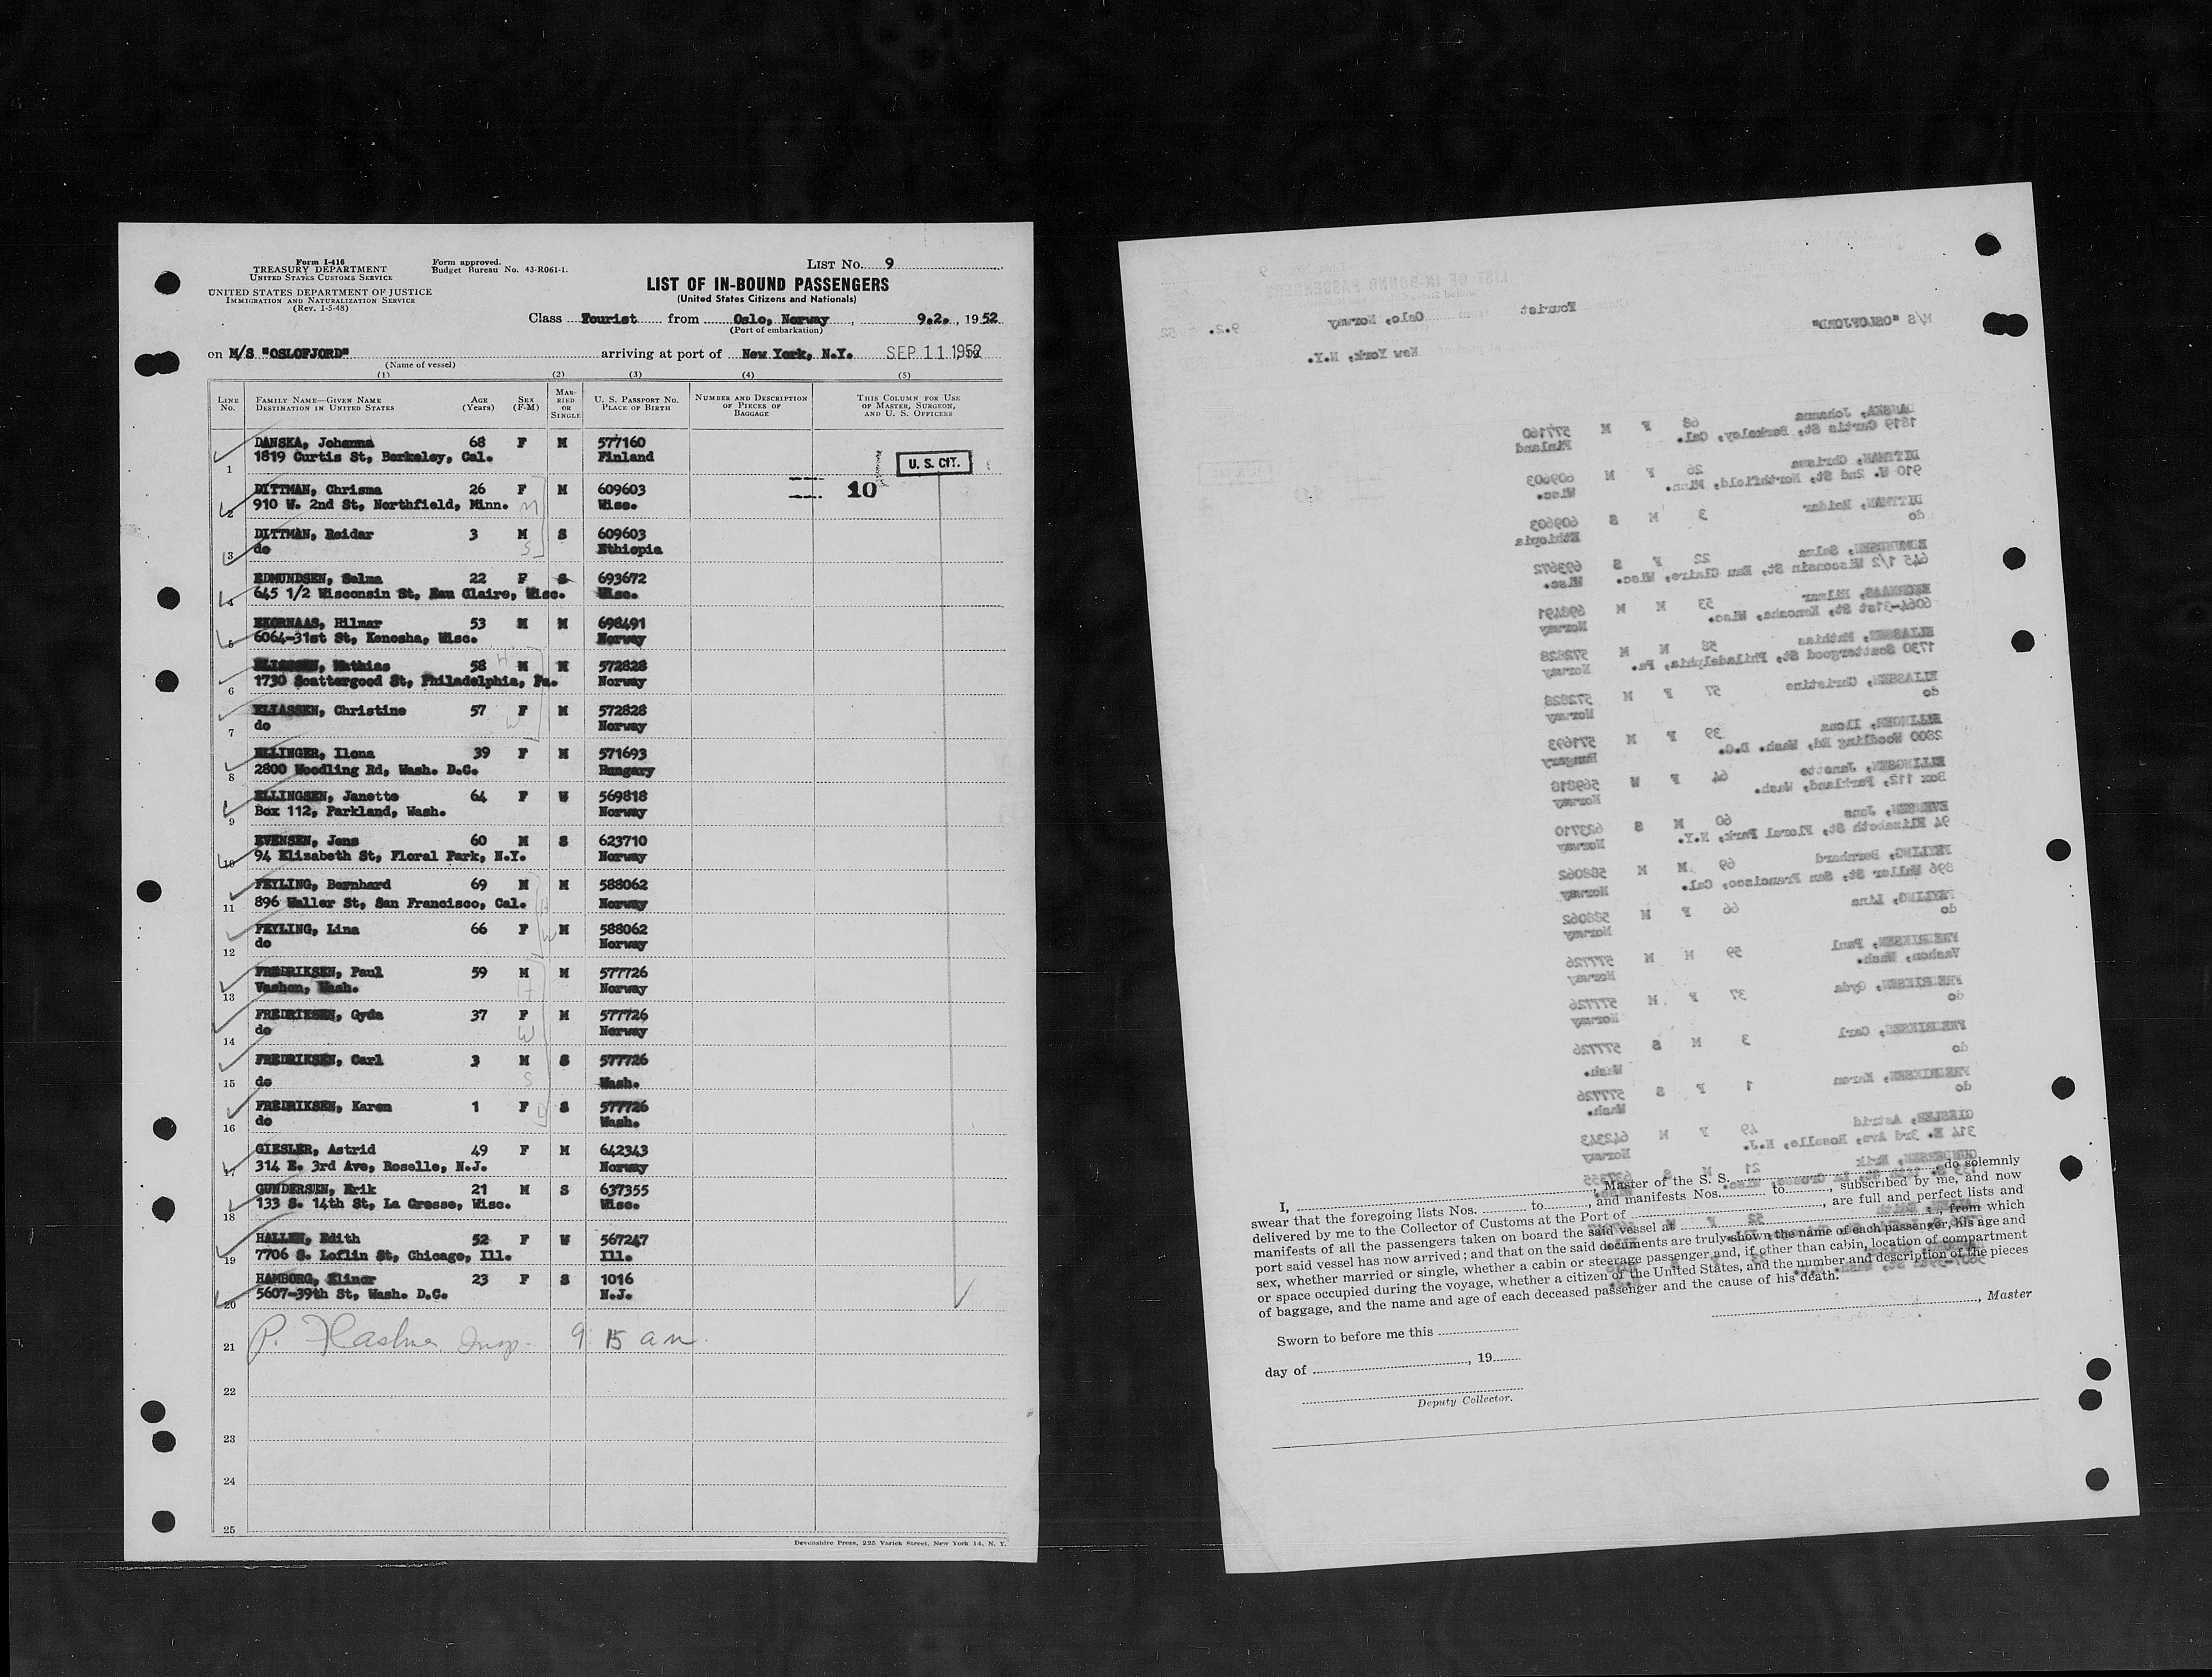 Form I-416
TREASURY DEPARTMENT
UNITED STATES CUSTOMS SERVICE
UNITED STATES DEPARTMENT OF JUSTICE
IMMIGRATION AND NATURALIZATION SERVICE
(Rev. 1-5-48)
Form approved.
Budget Bureau No. 43-R061-1.
LIST No. 9
LIST OF IN-BOUND PASSENGERS
(United States Citizens and Nationals)
Class Tourist from Oslo, Norway, 9.2., 1952
(Port of embarkation)
on M/S "OSLOFJORD" arriving at port of New York, N.Y. SEP 11 1952
(Name of vessel)
(1) (2) (3) (4) (5)
LINE No. FAMILY NAME—GIVEN NAME DESTINATION IN UNITED STATES AGE (Years) SEX (F-M) MARRIED OR SINGLE U. S. PASSPORT NO. PLACE OF BIRTH NUMBER AND DESCRIPTION OF PIECES OF BAGGAGE THIS COLUMN FOR USE OF MASTER, SURGEON, AND U. S. OFFICERS
DANSKA, Johanna 68 F M 577160
1 1819 Curtis St, Berkeley, Cal. Finland U. S. CIT.
DITTMAN, Chrisma 26 F M 609603 10
2 910 W. 2nd St, Northfield, Minn. M Wisc.
DITTMAN, Reidar 3 M S 609603
3 do S Ethiopia
EDMUNDSEN, Selma 22 F S 693672
4 645 1/2 Wisconsin St, Eau Claire, Wisc. Wisc.
EKORNAAS, Hilmar 53 M M 698491
5 6064-31st St, Kenosha, Wisc. Norway
ELIASSEN, Mathias 58 H M M 572828
6 1730 Scattergood St, Philadelphia, Pa. Norway
ELIASSEN, Christine 57 F M 572828
7 do W Norway
ELLINGER, Ilona 39 F M 571693
8 2800 Woodling Rd, Wash. D.C. Hungary
ELLINGSEN, Janette 64 F W 569818
9 Box 112, Parkland, Wash. Norway
EVENSEN, Jens 60 M S 623710
10 94 Elizabeth St, Floral Park, N.Y. Norway
FEYLING, Bernhard 69 M M 588062
11 896 Waller St, San Francisco, Cal. H Norway
FEYLING, Lina 66 F W M 588062
12 do Norway
FREDRIKSEN, Paul 59 M M 577726
13 Vashon, Wash. H Norway
FREDRIKSEN, Gyda 37 F M 577726
14 do W Norway
FREDRIKSEN, Carl 3 M S 577726
15 do S Wash.
FREDRIKSEN, Karen 1 F D S 577726
16 do Wash.
GIESLER, Astrid 49 F M 642343
17 314 E. 3rd Ave, Roselle, N.J. Norway
GUNDERSEN, Erik 21 M S 637355
18 133 S. 14th St, La Crosse, Wisc. Wisc.
HALLEN, Edith 52 F W 567247
19 7706 S. Loflin St, Chicago, Ill. Ill.
HAMBORG, Elinor 23 F S 1016
20 5607-39th St, Wash. D.C. N.J.
21 P. Insp. 9 15 am.
22
23
24
25
Devonshire Press, 225 Varick Street, New York 14, N. Y.
I, , Master of the S. S. do solemnly
swear that the foregoing lists Nos. to , and manifests Nos. to , subscribed by me, and now
delivered by me to the Collector of Customs at the Port of , are full and perfect lists and
manifests of all the passengers taken on board the said vessel at , from which
port said vessel has now arrived; and that on the said documents are truly shown the name of each passenger, his age and
sex, whether married or single, whether a cabin or steerage passenger and, if other than cabin, location of compartment
or space occupied during the voyage, whether a citizen of the United States, and the number and description of the pieces
of baggage, and the name and age of each deceased passenger and the cause of his death.
, Master
Sworn to before me this
day of , 19
Deputy Collector.